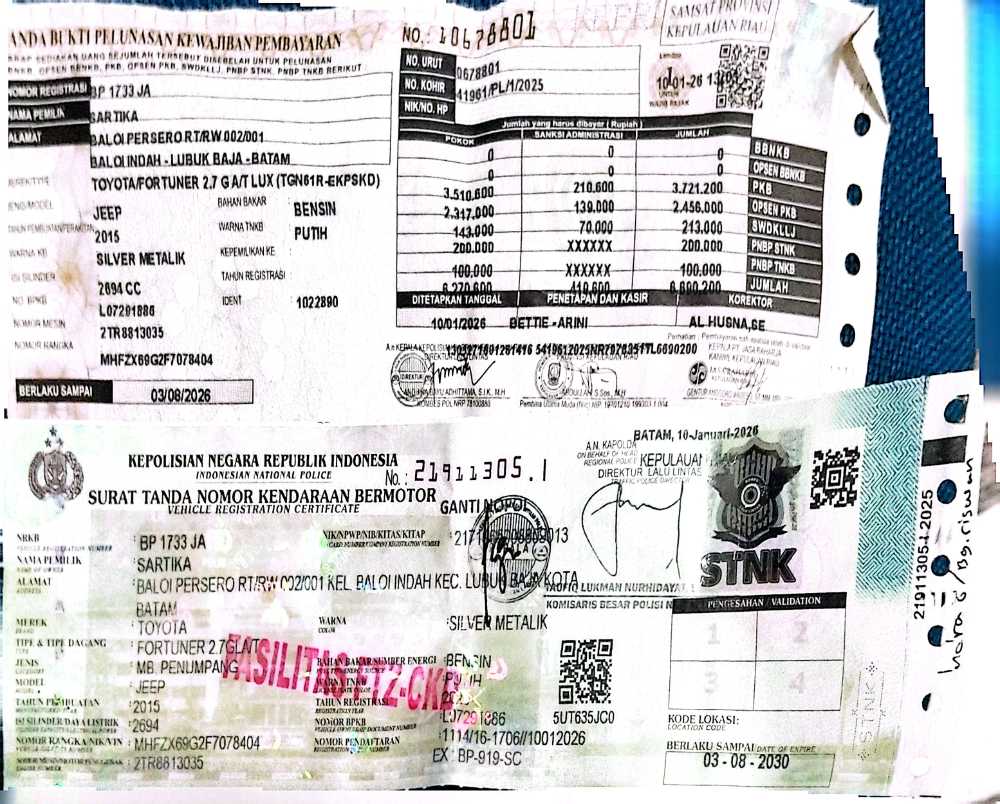 ANDA BUKTI PELUNASAN KEWAJIBAN PEMBAYARAN
NO.: 10678801
SAMSAT PROVINSI
KEPULAUAN RIAU
NO. URUT 0678801
NO. KOHIR 41961/PL/1/2025
NIK/NO. HP
10-01-26
NOMOR REGISTRASI BP 1733 JA
NAMA PEMILIK SARTIKA
ALAMAT BALOI PERSERO RT/RW 002/001
BALOI INDAH - LUBUK BAJA - BATAM
TOYOTA/FORTUNER 2.7 G A/T LUX (TGN61R-EKPSKD)
JEEP
BAHAN BAKAR : BENSIN
2015
WARNA TNKB : PUTIH
SILVER METALIK
KEPEMILIKAN KE :
ISI SILINDER 2694 CC
TAHUN REGISTRASI :
NO. BPKB L07291886
IDENT : 1022890
NOMOR MESIN 2TR8813035
NOMOR RANGKA MHFZX69G2F7078404
BERLAKU SAMPAI 03/08/2026
Jumlah yang harus dibayar (Rupiah)
POKOK SANKSI ADMINISTRASI JUMLAH
0 0 0 BBNKB
0 0 0 OPSEN BBNKB
3.510.600 210.600 3.721.200 PKB
2.317.000 139.000 2.456.000 OPSEN PKB
143.000 70.000 213.000 SWDKLLJ
200.000 XXXXXX 200.000 PNBP STNK
100.000 XXXXXX 100.000 PNBP TNKB
JUMLAH
DITETAPKAN TANGGAL PENETAPAN DAN KASIR KOREKTOR
10/01/2026 BETTIE - ARINI AL HUSNA,SE
KEPOLISIAN NEGARA REPUBLIK INDONESIA
INDONESIAN NATIONAL POLICE
No.: 21911305.1
SURAT TANDA NOMOR KENDARAAN BERMOTOR
VEHICLE REGISTRATION CERTIFICATE
GANTI NOPOL
BATAM, 10-Januari-2026
A.N. KAPOLDA KEPULAUAN
DIREKTUR LALU LINTAS
TRAFFIC POLICE DIRECTOR
STNK
NRKB : BP 1733 JA
NIK/NPWP/NIB/KITAS/KITAP
NAMA PEMILIK : SARTIKA
ALAMAT : BALOI PERSERO RT/RW 002/001 KEL. BALOI INDAH KEC. LUBUK BAJA KOTA
BATAM
LUKMAN NURHIDAYAT,
KOMISARIS BESAR POLISI
MEREK : TOYOTA
WARNA : SILVER METALIK
TIPE & TIPE DAGANG : FORTUNER 2.7GLA/T
JENIS : MB. PENUMPANG
BAHAN BAKAR/SUMBER ENERGI : BENSIN
MODEL : JEEP
WARNA TNKB
TAHUN PEMBUATAN : 2015
TAHUN REGISTRASI
ISI SILINDER/DAYA LISTRIK : 2694
NOMOR BPKB
NOMOR RANGKA/NIK/VIN : MHFZX69G2F7078404
NOMOR PENDAFTARAN : 1114/16-1706//10012026
: 2TR8813035
EX : BP-919-SC
5UT635JC0
PENGESAHAN / VALIDATION
1 2
3 4
KODE LOKASI:
LOCATION CODE
BERLAKU SAMPAI/DATE OF EXPIRE
03 - 08 - 2030
STNK
21911305.1.2025